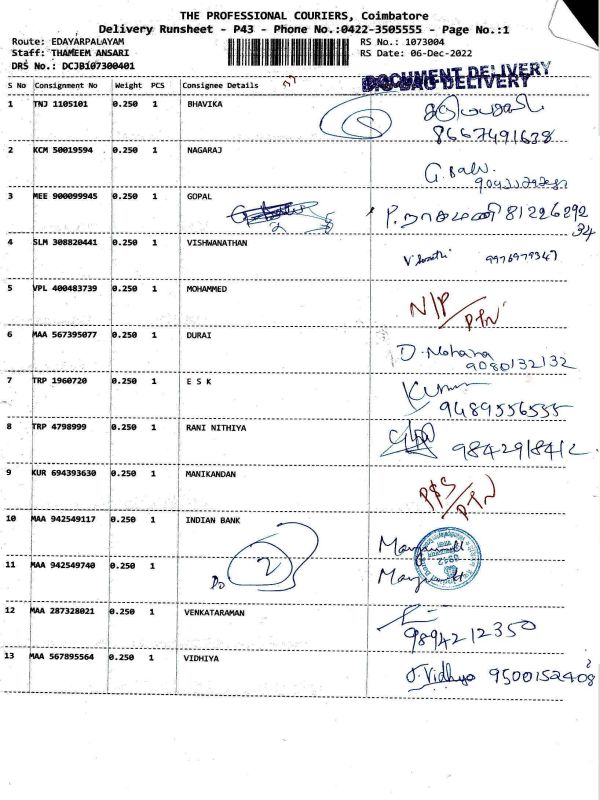 THE PROFESSIONAL COURIERS, Coimbatore
Delivery Runsheet - P43 - Phone No.:0422-3505555 - Page No.:1
Route: EDAYARPALAYAM
RS No.: 1073004
Staff: THAMEEM ANSARI
RS Date: 06-Dec-2022
DRS No.: DCJBI07300401
DOCUMENT DELIVERY
S No Consignment No Weight PCS Consignee Details
1 TNJ 1105101 0.250 1 BHAVIKA
8667491638
2 KCM 50019594 0.250 1 NAGARAJ
G. Balu.
3 MEE 900099945 0.250 1 GOPAL
4 SLM 308820441 0.250 1 VISHWANATHAN
9976979347
5 VPL 400483739 0.250 1 MOHAMMED
N/P
PTN
6 MAA 567395077 0.250 1 DURAI
D. Mohana
9080132132
7 TRP 1960720 0.250 1 E S K
Kumar
9489556535
8 TRP 4798999 0.250 1 RANI NITHIYA
9842918412
9 KUR 694393630 0.250 1 MANIKANDAN
P&S/PTN
10 MAA 942549117 0.250 1 INDIAN BANK
11 MAA 942549740 0.250 1 Do 2
12 MAA 287328021 0.250 1 VENKATARAMAN
9894212350
13 MAA 567895564 0.250 1 VIDHIYA
J. Vidhya 9500152408